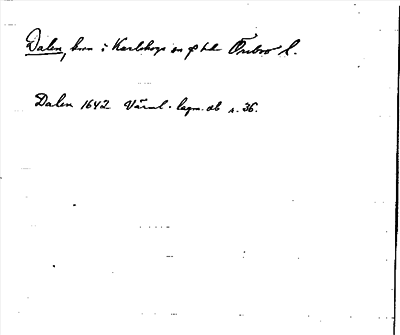 Dalen, hmn i Karlskoga sn o hd Örebro l.
Dalen 1642 Värml. lagm. db s. 36.